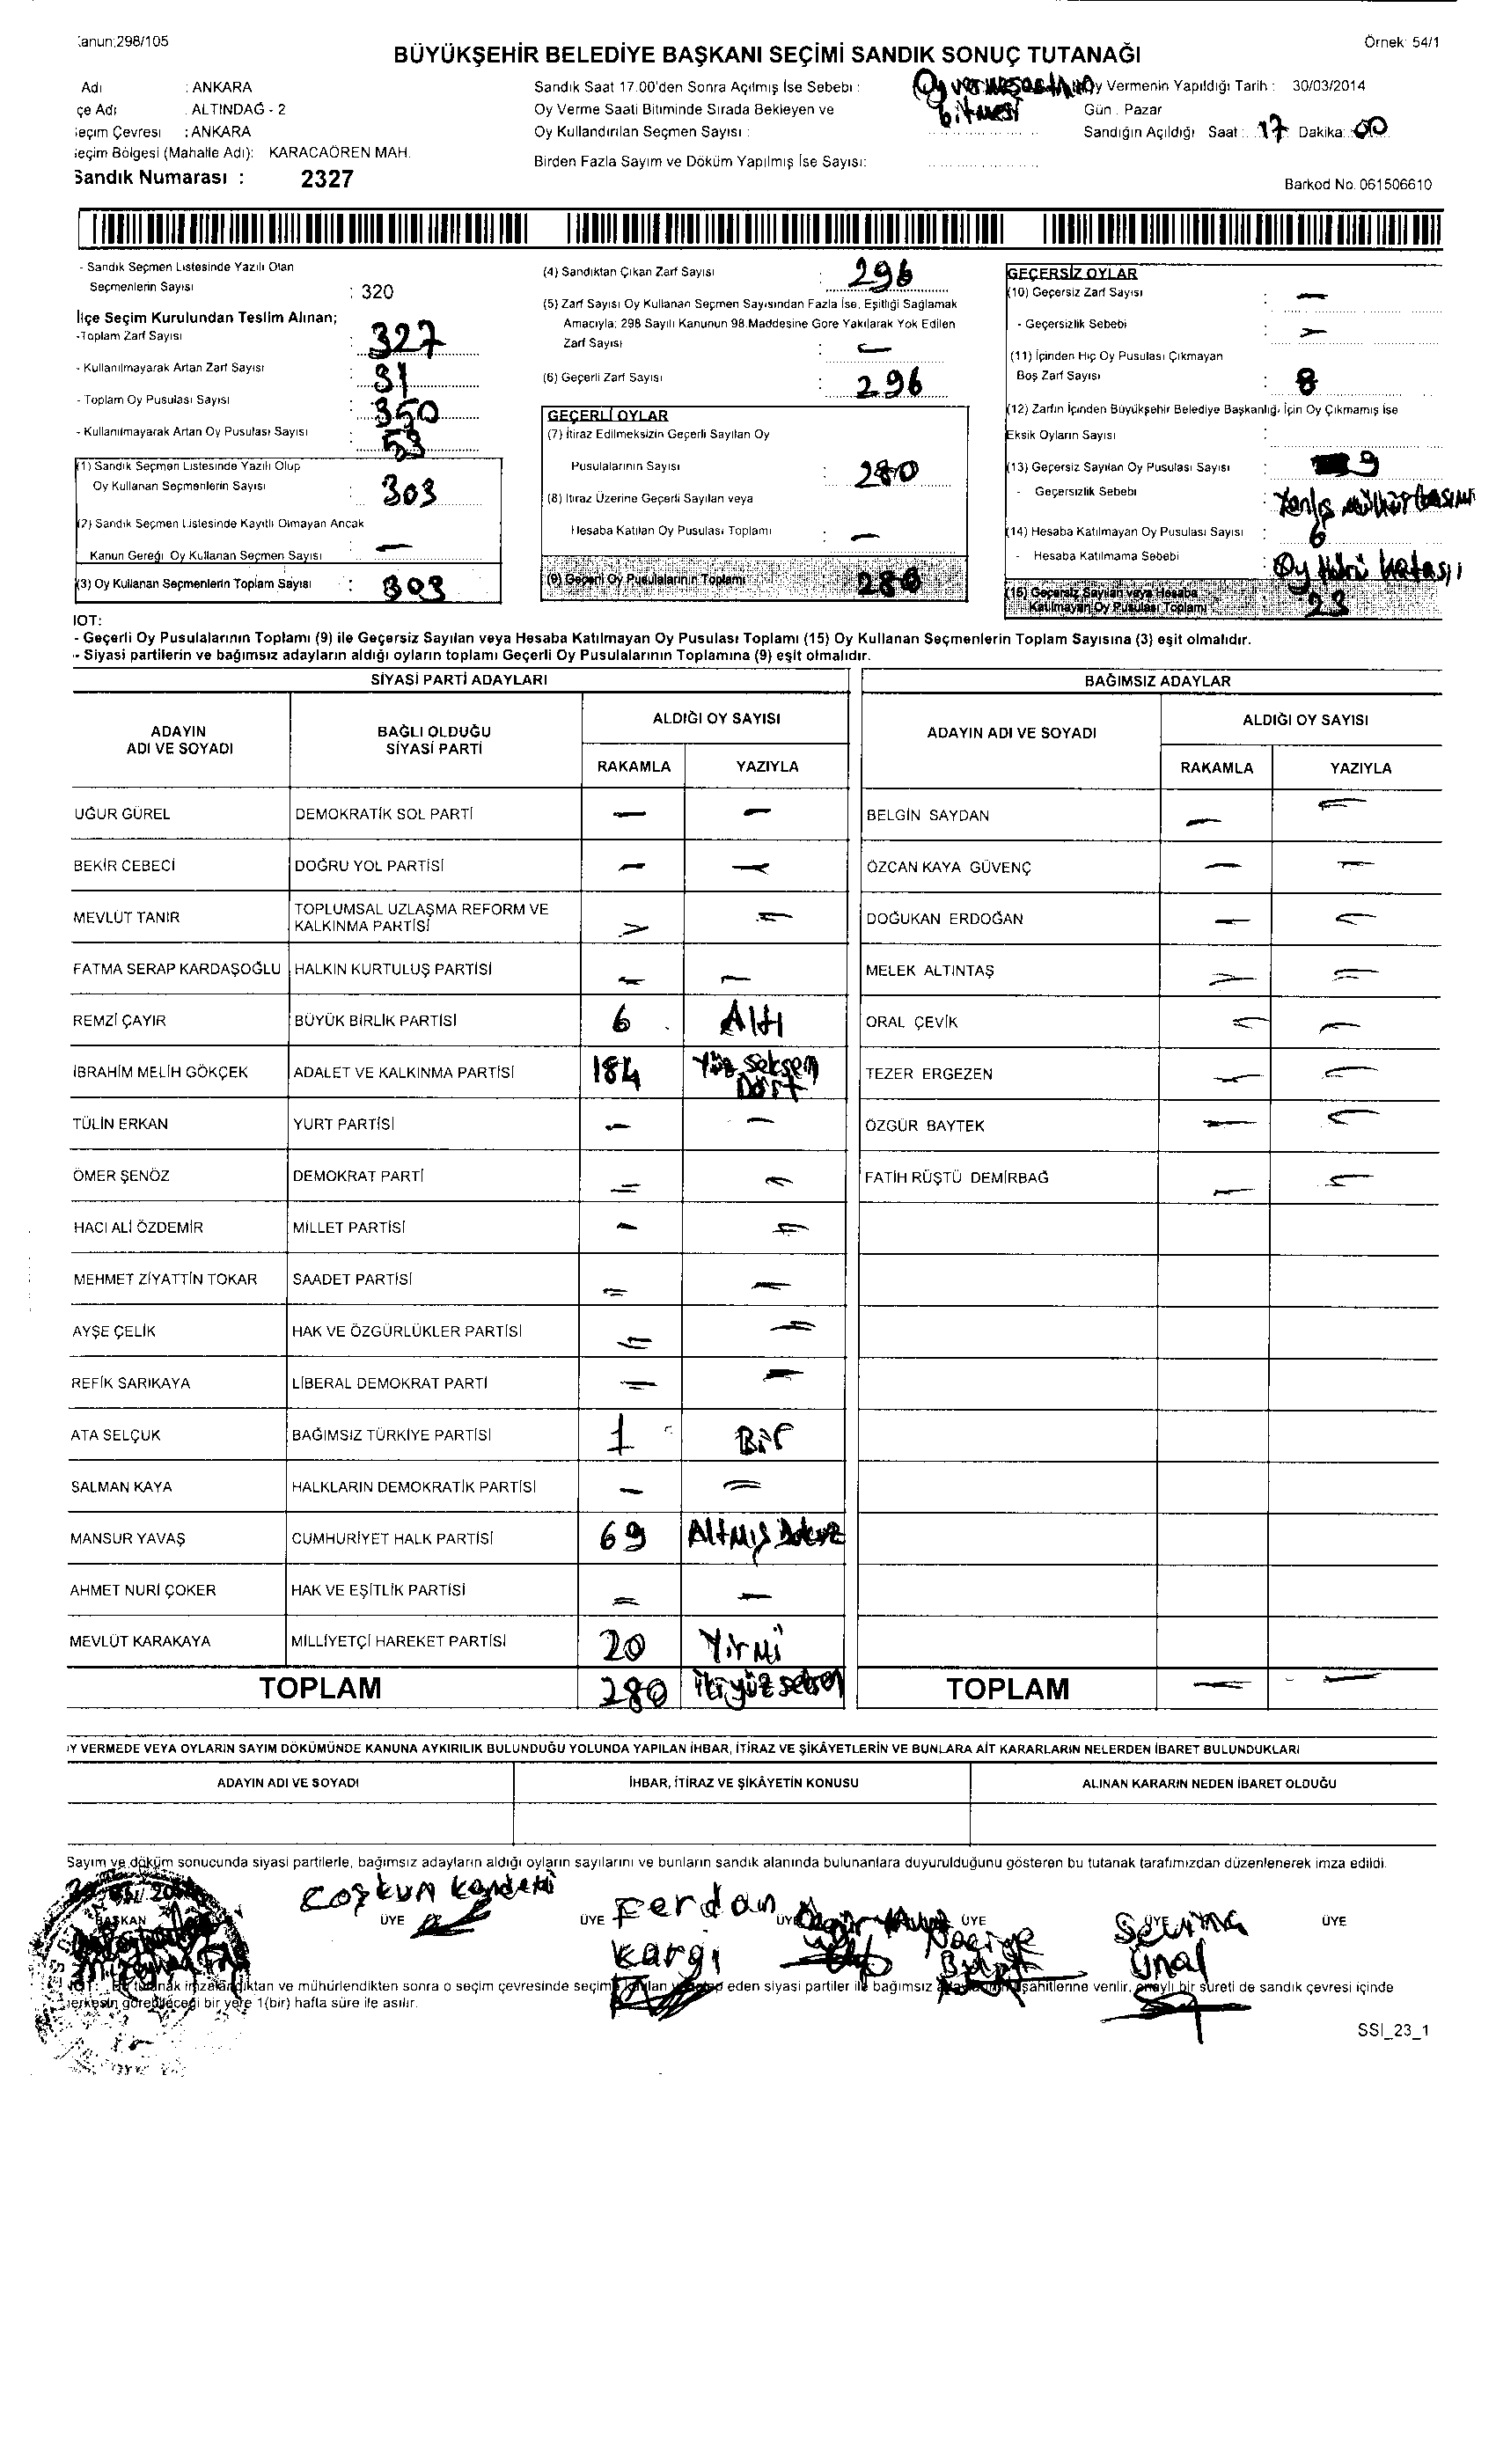 Kanun:298/105
Örnek: 54/1
BÜYÜKŞEHİR BELEDİYE BAŞKANI SEÇİMİ SANDIK SONUÇ TUTANAĞI
Adı : ANKARA
çe Adı : ALTINDAĞ - 2
eçim Çevresi : ANKARA
eçim Bölgesi (Mahalle Adı): KARACAÖREN MAH.
Sandık Numarası : 2327
Sandık Saat 17.00'den Sonra Açılmış İse Sebebi :
Oy Verme Saati Bitiminde Sırada Bekleyen ve
Oy Kullandırılan Seçmen Sayısı :
Birden Fazla Sayım ve Döküm Yapılmış İse Sayısı:
bitmesi
Oy Vermenin Yapıldığı Tarih : 30/03/2014
Gün : Pazar
Sandığın Açıldığı Saat : 17 Dakika: 00
Barkod No: 061506610
- Sandık Seçmen Listesinde Yazılı Olan
Seçmenlerin Sayısı : 320
İlçe Seçim Kurulundan Teslim Alınan;
-Toplam Zarf Sayısı : 327
- Kullanılmayarak Artan Zarf Sayısı : 31
- Toplam Oy Pusulası Sayısı : 350
- Kullanılmayarak Artan Oy Pusulası Sayısı : 53
(1) Sandık Seçmen Listesinde Yazılı Olup
Oy Kullanan Seçmenlerin Sayısı : 303
(2) Sandık Seçmen Listesinde Kayıtlı Olmayan Ancak
Kanun Gereği Oy Kullanan Seçmen Sayısı : —
(3) Oy Kullanan Seçmenlerin Toplam Sayısı : 303
(4) Sandıktan Çıkan Zarf Sayısı : 296
(5) Zarf Sayısı Oy Kullanan Seçmen Sayısından Fazla İse, Eşitliği Sağlamak
Amacıyla; 298 Sayılı Kanunun 98.Maddesine Göre Yakılarak Yok Edilen
Zarf Sayısı : —
(6) Geçerli Zarf Sayısı : 296
GEÇERLİ OYLAR
(7) İtiraz Edilmeksizin Geçerli Sayılan Oy
Pusulalarının Sayısı : 280
(8) İtiraz Üzerine Geçerli Sayılan veya
Hesaba Katılan Oy Pusulası Toplamı : —
(9) Geçerli Oy Pusulalarının Toplamı : 280
GEÇERSİZ OYLAR
(10) Geçersiz Zarf Sayısı : —
- Geçersizlik Sebebi : —
(11) İçinden Hiç Oy Pusulası Çıkmayan
Boş Zarf Sayısı : 8
(12) Zarfın İçinden Büyükşehir Belediye Başkanlığı İçin Oy Çıkmamış İse
Eksik Oyların Sayısı :
(13) Geçersiz Sayılan Oy Pusulası Sayısı : 9
- Geçersizlik Sebebi : Yanlış mühür basımı
(14) Hesaba Katılmayan Oy Pusulası Sayısı : 6
- Hesaba Katılmama Sebebi : Oy hatası
(15) Geçersiz Sayılan veya Hesaba
Katılmayan Oy Pusulası Toplamı : 23
NOT:
- Geçerli Oy Pusulalarının Toplamı (9) ile Geçersiz Sayılan veya Hesaba Katılmayan Oy Pusulası Toplamı (15) Oy Kullanan Seçmenlerin Toplam Sayısına (3) eşit olmalıdır.
- Siyasi partilerin ve bağımsız adayların aldığı oyların toplamı Geçerli Oy Pusulalarının Toplamına (9) eşit olmalıdır.
SİYASİ PARTİ ADAYLARI
ADAYIN ADI VE SOYADI BAĞLI OLDUĞU SİYASİ PARTİ ALDIĞI OY SAYISI
RAKAMLA YAZIYLA
UĞUR GÜREL DEMOKRATİK SOL PARTİ — —
BEKİR CEBECİ DOĞRU YOL PARTİSİ — —
MEVLÜT TANIR TOPLUMSAL UZLAŞMA REFORM VE KALKINMA PARTİSİ — —
FATMA SERAP KARDAŞOĞLU HALKIN KURTULUŞ PARTİSİ — —
REMZİ ÇAYIR BÜYÜK BİRLİK PARTİSİ 6 Altı
İBRAHİM MELİH GÖKÇEK ADALET VE KALKINMA PARTİSİ 184 Yüz seksen Dört
TÜLİN ERKAN YURT PARTİSİ — —
ÖMER ŞENÖZ DEMOKRAT PARTİ — —
HACI ALİ ÖZDEMİR MİLLET PARTİSİ — —
MEHMET ZİYATTİN TOKAR SAADET PARTİSİ — —
AYŞE ÇELİK HAK VE ÖZGÜRLÜKLER PARTİSİ — —
REFİK SARIKAYA LİBERAL DEMOKRAT PARTİ — —
ATA SELÇUK BAĞIMSIZ TÜRKİYE PARTİSİ 1 Bir
SALMAN KAYA HALKLARIN DEMOKRATİK PARTİSİ — —
MANSUR YAVAŞ CUMHURİYET HALK PARTİSİ 69 Altmış Dokuz
AHMET NURİ ÇOKER HAK VE EŞİTLİK PARTİSİ — —
MEVLÜT KARAKAYA MİLLİYETÇİ HAREKET PARTİSİ 20 Yirmi
TOPLAM 280 ikiyüz seksen
BAĞIMSIZ ADAYLAR
ADAYIN ADI VE SOYADI ALDIĞI OY SAYISI
RAKAMLA YAZIYLA
BELGİN SAYDAN — —
ÖZCAN KAYA GÜVENÇ — —
DOĞUKAN ERDOĞAN — —
MELEK ALTINTAŞ — —
ORAL ÇEVİK — —
TEZER ERGEZEN — —
ÖZGÜR BAYTEK — —
FATİH RÜŞTÜ DEMİRBAĞ — —
TOPLAM — —
OY VERMEDE VEYA OYLARIN SAYIM DÖKÜMÜNDE KANUNA AYKIRILIK BULUNDUĞU YOLUNDA YAPILAN İHBAR, İTİRAZ VE ŞİKÂYETLERİN VE BUNLARA AİT KARARLARIN NELERDEN İBARET BULUNDUKLARI
ADAYIN ADI VE SOYADI İHBAR, İTİRAZ VE ŞİKÂYETİN KONUSU ALINAN KARARIN NEDEN İBARET OLDUĞU
Sayım ve döküm sonucunda siyasi partilerle, bağımsız adayların aldığı oyların sayılarını ve bunların sandık alanında bulunanlara duyurulduğunu gösteren bu tutanak tarafımızdan düzenlenerek imza edildi.
BAŞKAN ÜYE ÜYE ÜYE ÜYE ÜYE ÜYE
Coşkun
Ferdan Kargı
Sevina Ünal
tutanak imzalandıktan ve mühürlendikten sonra o seçim çevresinde seçime eden siyasi partiler ile bağımsız şahitlerine verilir, onaylı bir sureti de sandık çevresi içinde
herkesin görebileceği bir yere 1(bir) hafta süre ile asılır.
SSI_23_1